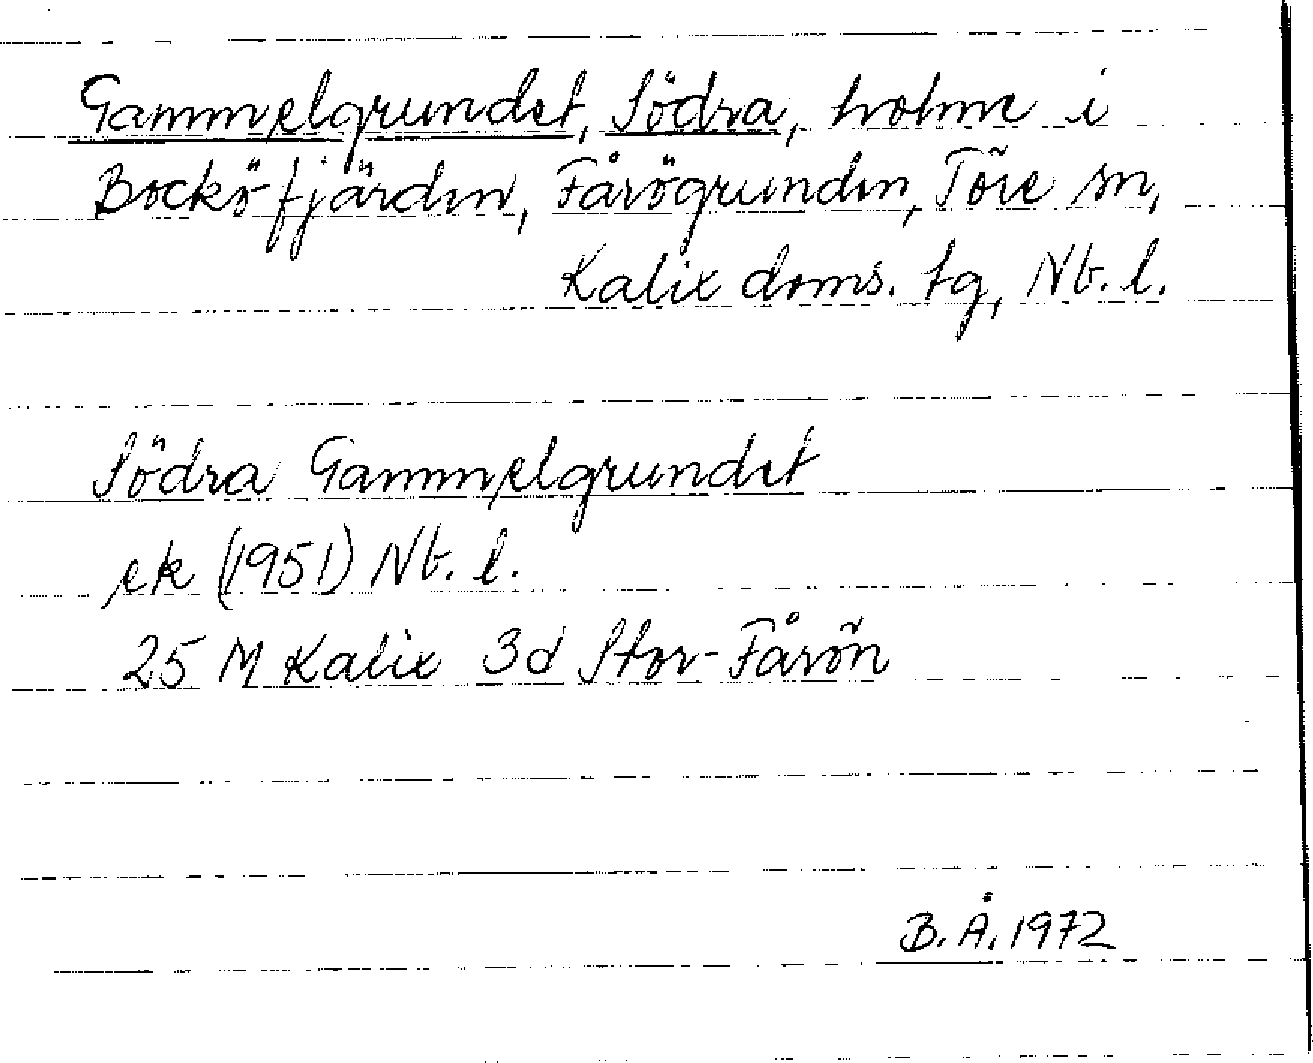 Gammelgrundet, Södra, holme i
Bocköfjärden, Fårögrunden, Töre sn,
Kalix doms. tg, Nb. l.
Södra Gammelgrundet
ek (1951) Nb. l.
25 M Kalix 3d Stor-Fårön
B. Å. 1972